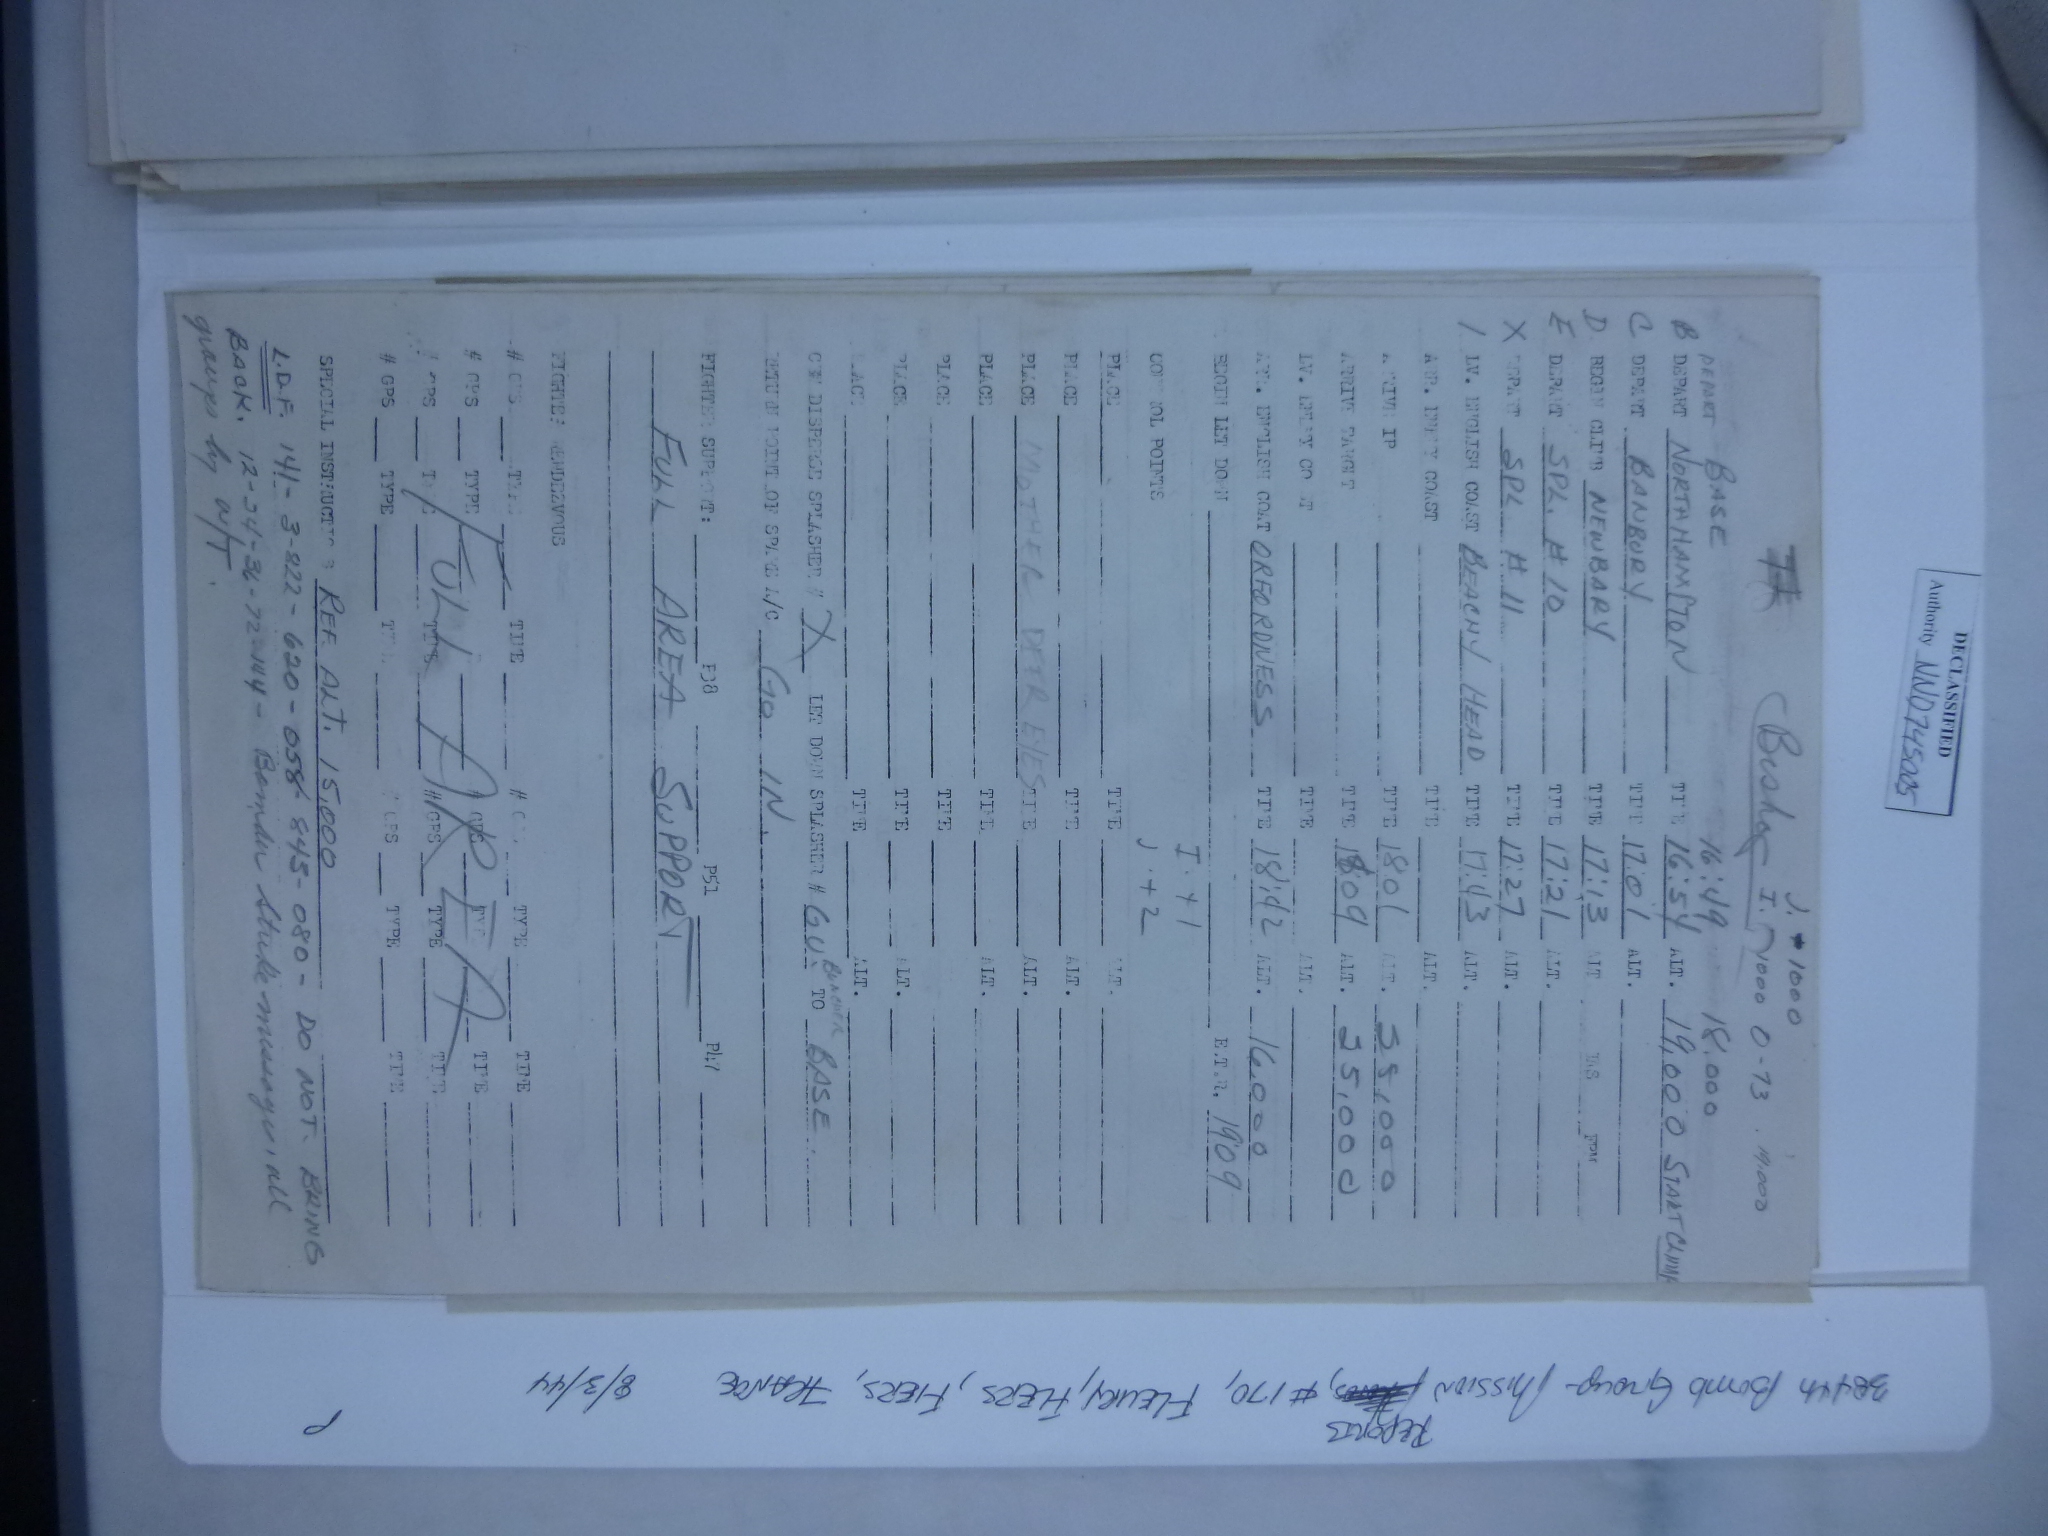 DECLASSIFIED
Authority NND745005
J. + 1000
Bishop I. 7000 0-73
DEPART BASE 16:49 18,000
B DEPART NORTHAMPTON TIME 16:54 ALT. 19,000 START CLIMB
C DEPART BANBURY TIME 17:01 ALT.
D BEGIN CLIMB NEWBARY TIME 17:13 ALT FPM
E DEPART SPL. # 10 TIME 17:21 ALT.
X DEPART SPL # 11 TIME 17:27 ALT.
1 LV. ENGLISH COAST BEACHY HEAD TIME 17:43 ALT.
ARR. ENEMY COAST TIME ALT.
ARRIVE IP TIME 1801 ALT. 25,000
ARRIVE TARGET TIME 1809 ALT. 25,000
LV. ENEMY COAST TIME ALT.
ARR. ENGLISH COAST ORFORDNESS TIME 18:42 ALT. 16,000
BEGIN LET DOWN E.T.R. 1909
I. + 1
CONTROL POINTS J. + 2
PLACE TIME ALT.
PLACE TIME ALT.
PLACE MOTHER TIME ALT.
PLACE TIME ALT.
PLACE TIME
PLACE TIME ALT.
PLACE TIME ALT.
CW DISPERSE SPLASHER # X LET DOWN SPLASHER # GU. BUNCHER TO BASE
GO IN.
FIGHTER SUPPORT: P38 P51 P47
FULL AREA SUPPORT
FIGHTER RENDEZVOUS
# GPS TYPE TIME # GPS TYPE TIME
# GPS TYPE TIME # GPS TYPE TIME
# GPS TYPE TIME # GPS TYPE TIME
# GPS TYPE TIME # GPS TYPE TIME
FULL AREA
SPECIAL INSTRUCTIONS REF. ALT. 15,000
L.D.F. 141-3-822-620-058-845-080- DO NOT. BRING
BACK. 12-24-36-72-144- Bomber strike message, all
groups by W/T.
384th Bomb Group- Mission Reports, #170, FLEURY, FLERS, FIERS, FRANCE 8/3/44
P